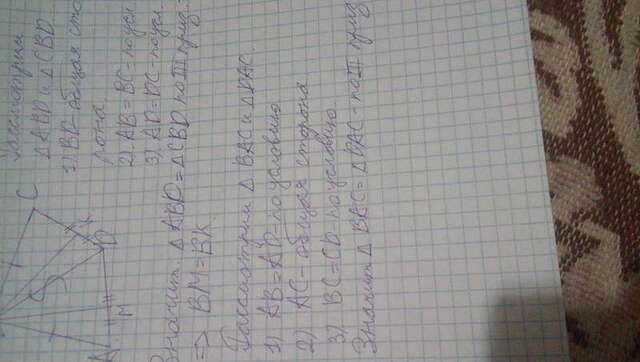 Рассмотрим
Δ ABD и Δ CBD
1) BD-общая сто
рона
2) AB=BC-по усл
3) AD=DC-по усл
Значит Δ ABD=ΔCBD по III приз
⇒ BM=BK
Рассмотрим Δ BAC и Δ DAC.
1) AB=AD-по условию
2) AC-общая сторона
3) BC=CD-по условию.
Значит Δ BAC=ΔDAC-по III приз
C
D
M
A